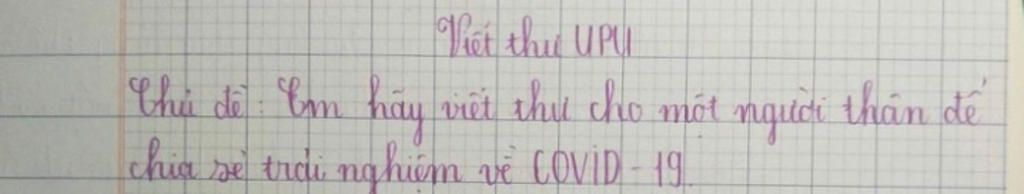 Viết thư UPU
Chủ đề: Em hãy viết thư cho một người thân để
chia sẻ trải nghiệm về COVID-19.